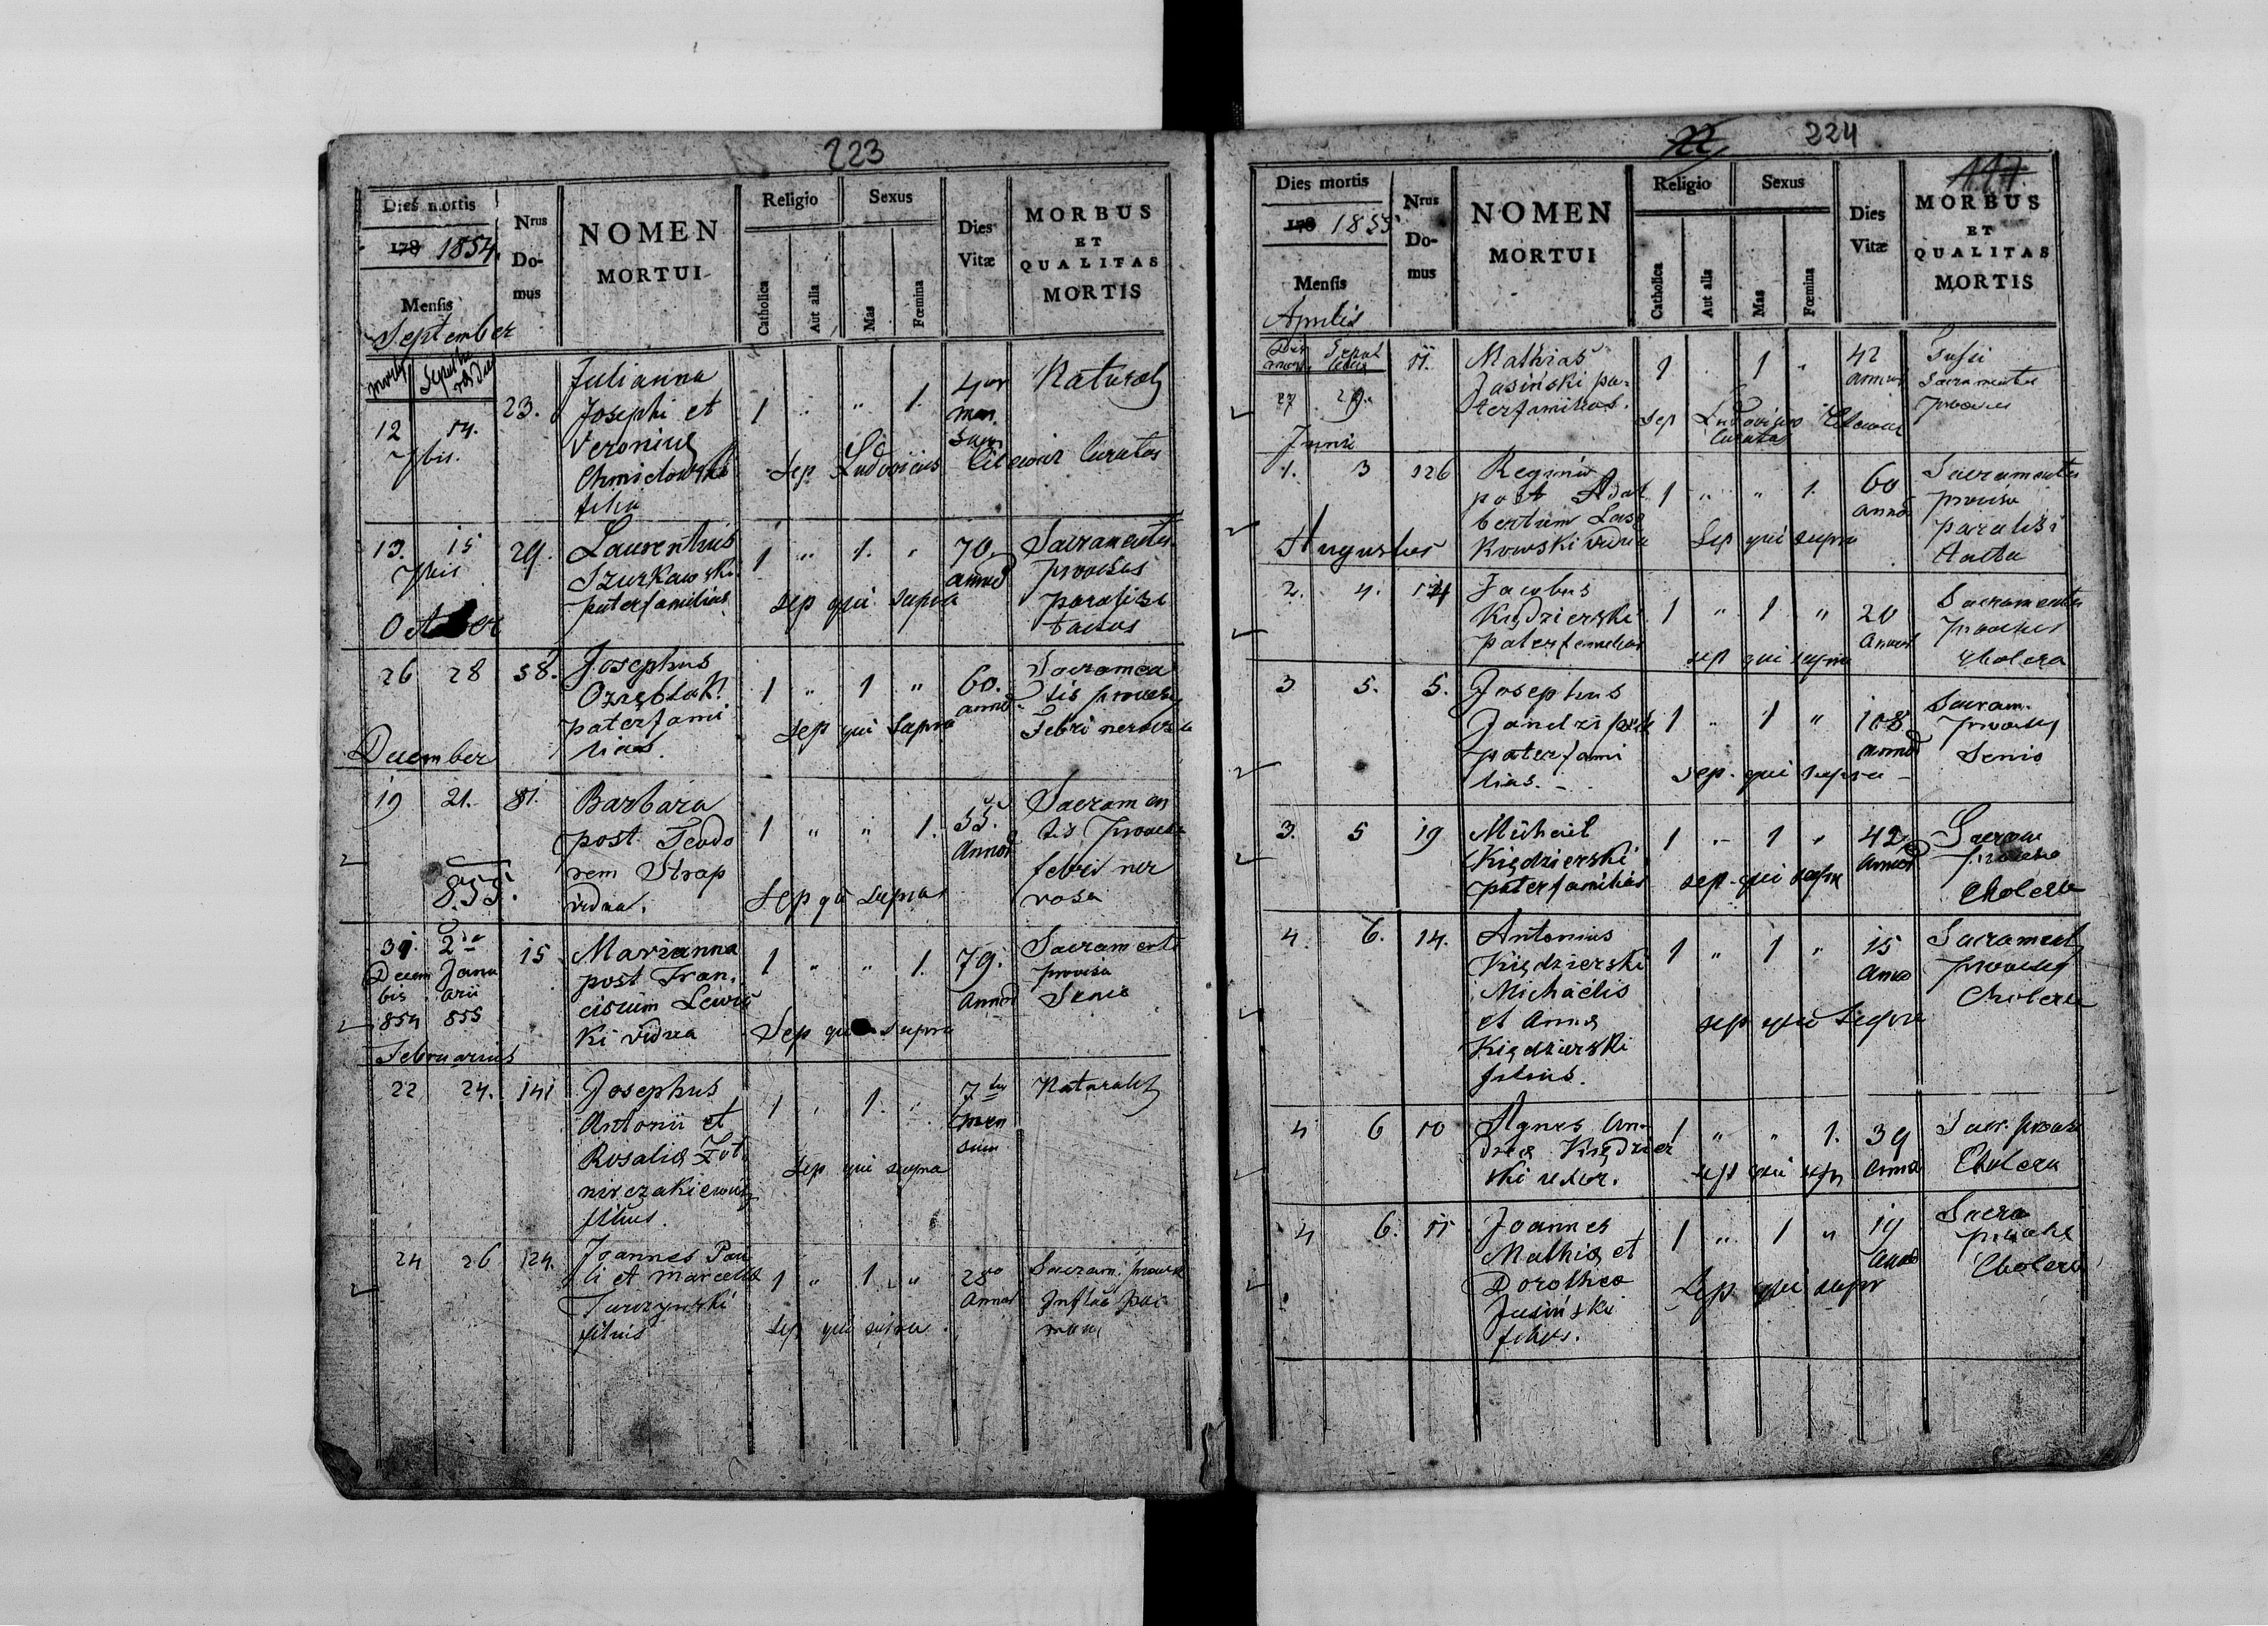 223
Dies mortis
178 1854.
Mensis
September
Nrus
Do-
mus
NOMEN
MORTUI
Religio
Catholica
Aut alia
Sexus
Mas
Fœmina
Dies
Vitæ
MORBUS
ET
QUALITAS
MORTIS
12 14.
7bis.
23.
Julianna
Josephi et
Veronicæ
Chmielowski
filia
1 " " 1.
4or
men
sium
Naturalis
Sep Ludovicus Curatus
13. 15
7bis
29.
Laurentius
Szurkawski
paterfamilias
1 " 1. "
70
annor
Sacramentis
provisus
paralisi
tactus
sep qui supra
October
26 28 58.
Josephus
Oziębłak
paterfami
lias.
1 " 1 "
60.
annor
Sacramen
tis provisus
Febri nervosa
sep qui supra
December
19 21. 81.
Barbara
post Teodo
rem Strap
vidua.
1 " " 1.
55.
Annor
Sacramen
tis provisa
febri ner
vosa
Sep qui supra
855.
31. 2da
Decem Janu
bis arii
854 855
15
Marianna
post Fran
ciscum Lewic
ki vidua
1 " " 1.
79.
Annor
Sacramentis
provisa
Senio
Sep qui supra
Februarius
22 24. 141
Josephus
Antonii et
Rosaliæ
filius.
1 " 1. "
7
men
sium
Naturalis
Sep qui supra
24 26 124.
Joannes Pau
li et Marcellæ
Turczynski
filius
1 " 1 "
28
Annor
Sacram. provis
Inflam
sep qui supra
22 224
117.
Dies mortis
178 1855
Mensis
Aprilis
Nrus
Do-
mus
NOMEN
MORTUI
Religio
Catholica
Aut alia
Sexus
Mas
Fœmina
Dies
Vitæ
MORBUS
ET
QUALITAS
MORTIS
27 29. 11.
Mathias
Jasiński pa-
terfamilias.
1 " 1 "
42
annor
Tussi
Sacramentis
provisus
Sep Ludovicus
Curatus
Junii
1. 3 126
Regina
post Adal
bertum Lase
kowski vidua
1 " " 1.
60
annor
Sacramentis
provisa
paralisi
tacta
Sep qui supra
Augustus
2. 4.
Jacobus
Kiędzierski
paterfamilias
1 " 1 "
20
Annor
Sacramentis
provisus
Cholera
sep qui supra
3 5. 5.
Josephus
paterfami
lias.
1 " 1 "
108
annor
Sacram.
provisus
Senio
sep. qui supra
3. 5 19
Michael
Kiędzierski
paterfamilias
1 " 1 "
42
annor
Sacram
provisus
Cholera
sep qui supra
4. 6. 14.
Antonius
Kiędzierski
Michaelis
et Annæ
Kiędzierski
filius.
1 " 1 "
15
Annor
Sacramentis
provisus
Cholera
sep qui supra
4 6 10
Agnes An-
dreæ Kiędzier
ski uxor.
1 " " 1.
39
Annor
Sacr. provisa
Cholera
sep qui supr
4 6. 11
Joannes
Mathiæ et
Dorotheæ
Jasiński
filius.
1 " 1 "
19
Annor
Sacra
provisus
Cholera
Sep qui supr